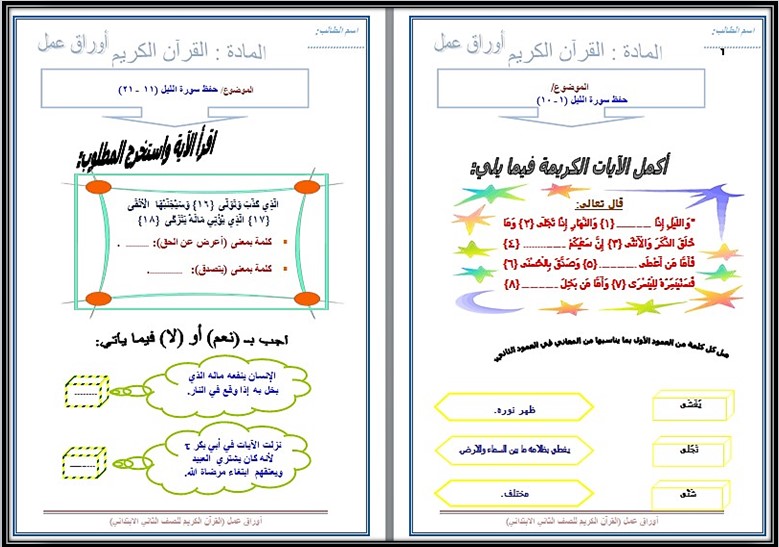 اسم الطالب:
٦
أوراق عمل
المادة : القرآن الكريم
الموضوع/
حفظ سورة الليل (١ - ١٠)
أكمل الآيات الكريمة فيما يلي:
قال تعالى:
"وَاللَّيْلِ إِذَا ______ {١} وَالنَّهَارِ إِذَا تَجَلَّى {٢} وَمَا
خَلَقَ الذَّكَرَ وَالْأُنثَى {٣} إِنَّ سَعْيَكُمْ ............ {٤}
فَأَمَّا مَن أَعْطَى ______ {٥} وَصَدَّقَ بِالْحُسْنَى {٦}
فَسَنُيَسِّرُهُ لِلْيُسْرَى {٧} وَأَمَّا مَن بَخِلَ ______ {٨}
صل كل كلمة من العمود الأول بما يناسبها من المعاني في العمود الثاني:
يَغْشَى
ظهر نوره.
تَجَلَّى
يغطي بظلامه ما بين السماء والأرض
شَتَّى
مختلف.
أوراق عمل (القرآن الكريم للصف الثاني الابتدائي)
اسم الطالب:
أوراق عمل
المادة : القرآن الكريم
الموضوع/ حفظ سورة الليل (١١ - ٢١)
اقرأ الآية واستخرج المطلوب:
الَّذِي كَذَّبَ وَتَوَلَّى {١٦} وَسَيُجَنَّبُهَا الْأَتْقَى
{١٧} الَّذِي يُؤْتِي مَالَهُ يَتَزَكَّى {١٨}
كلمة بمعنى (أعرض عن الحق): ______ .
كلمة بمعنى (يتصدق): ______.
أجب بـ (نعم) أو (لا) فيما يأتي:
الإنسان ينفعه ماله الذي
بخل به إذا وقع في النار.
نزلت الآيات في أبي بكر τ
لأنه كان يشتري العبيد
ويعتقهم ابتغاء مرضاة الله.
أوراق عمل (القرآن الكريم للصف الثاني الابتدائي)